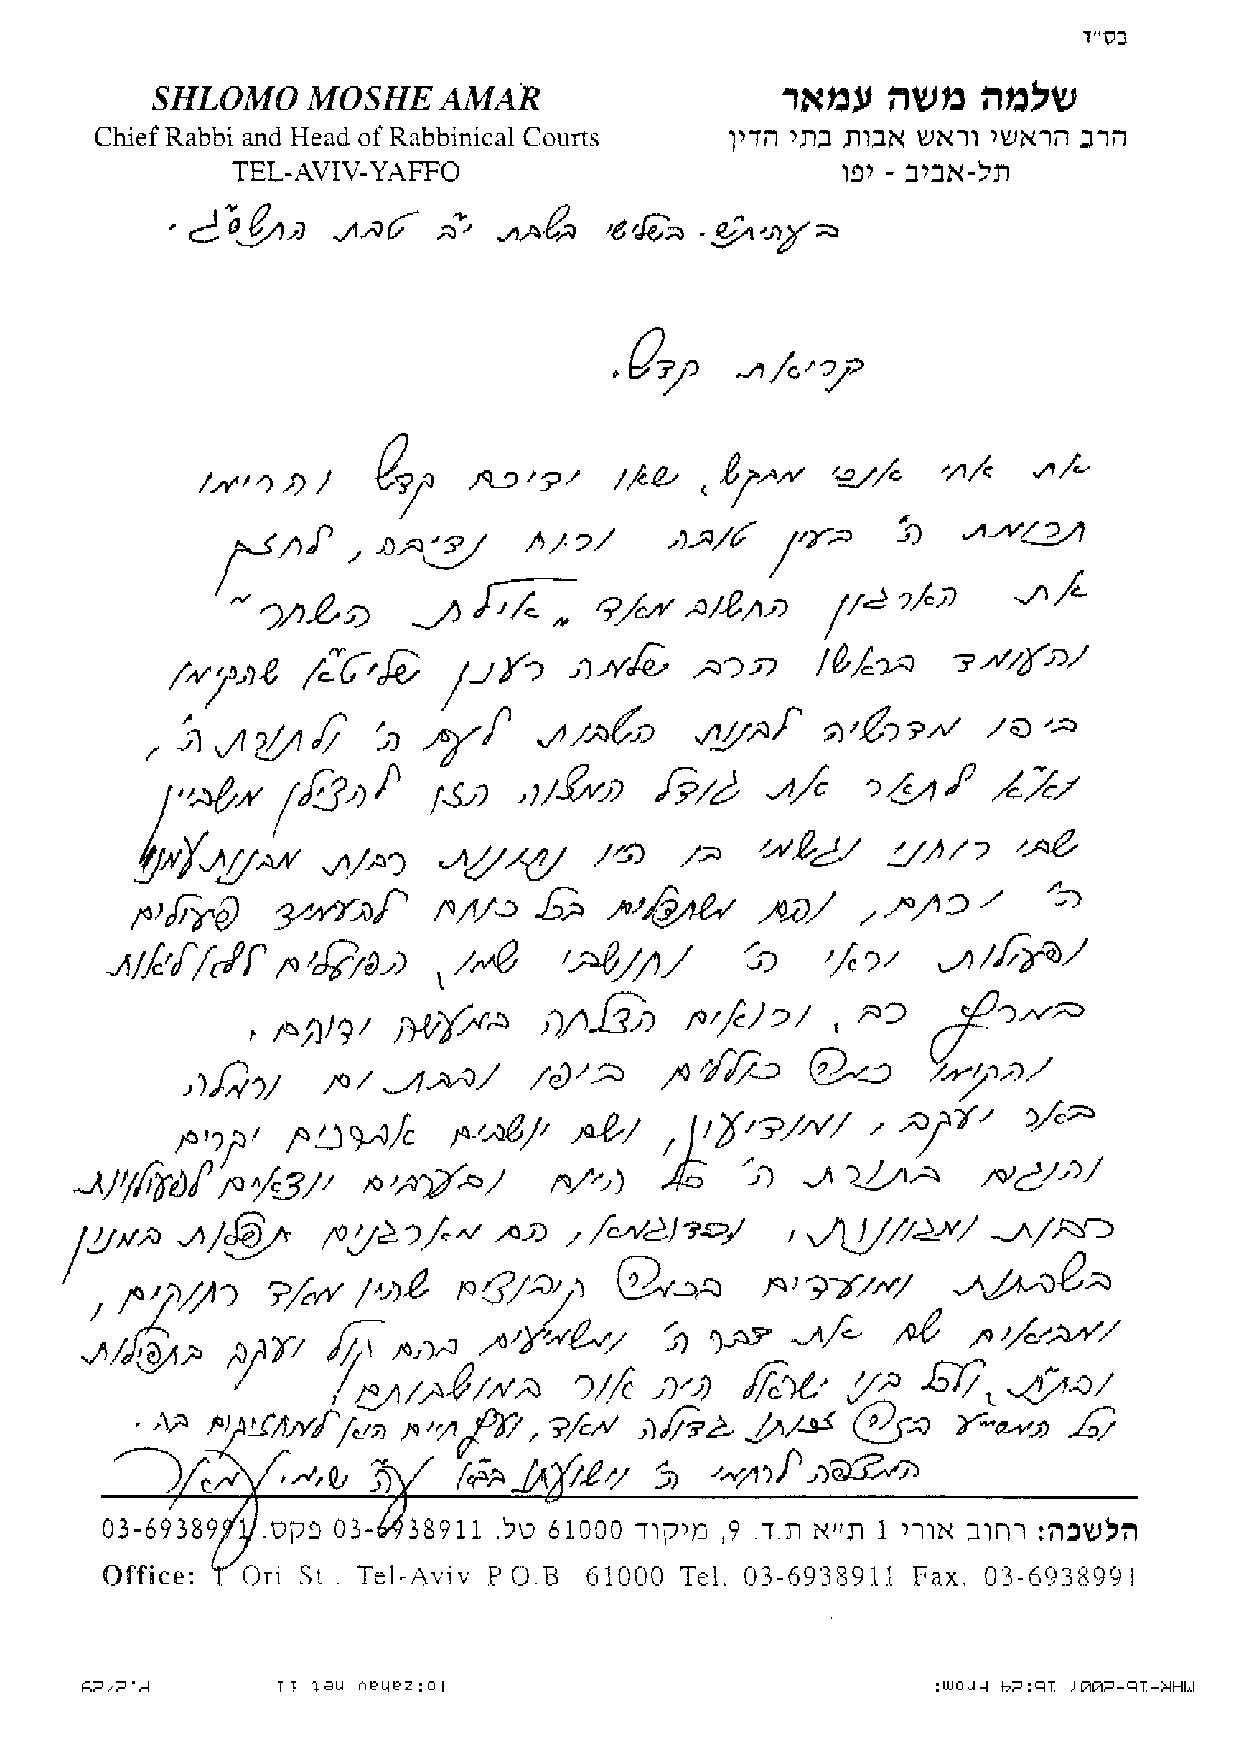 בס"ד
SHLOMO MOSHE AMAR
שלמה משה עמאר
Chief Rabbi and Head of Rabbinical Courts
הרב הראשי וראש אבות בתי הדין
TEL-AVIV-YAFFO
תל-אביב - יפו
בשלישי בשבת י"ב טבת התשס"ג.
קריאת קדש.
את אחי אנכי מבקש, שאו ידיכם קדש והרימו
תרומת ה' בעין טובה ורוח נדיבה, לחזק
את הארגון החשוב מאד "אילת השחר"
והעומד בראשו הרב שלמה רענן שליט"א שהקימו
ביפו מדרשיה לבנות השבות לעם ה' ולתורת ה',
וא"א לתאר את גודל המצוה הזו להצילן משביין
שבי רוחני וגשמי בו היו נתונות רבות מבנות עמנו
ה' ירחם, והם משתדלים בכל כוחם להעמיד פעולים
ופעולות יראי ה' וחושבי שמו, הפועלים לפלאות
במרץ רב, ורואים הצלחה במעשה ידיהם.
והקימו כמ"כ כוללים ביפו ובבת ים ורמלה
באר יעקב, ומודיעין, ושם יושבים אברכים יקרים
והוגים בתורת ה' כל היום ובערבים יוצאים לפעילויות
רבות ומגוונות, ולדוגמא, הם מארגנים תפלות במנין
בשבתות ומועדים בכמ"כ קיבוצים שהיו מאד רחוקים,
ומביאים שם את דבר ה' ומשמיעים ברם קול יעקב בתפלות
ובת"ת, ולכל בני ישראל היה אור במושבותם
וכל המסייע בזה זכותו גדולה מאד, ועץ חיים היא למחזיקים בה.
המצפה לרחמי ה' וישועתו בב"א ע"ה שלמה משה עמאר
הלשכה: רחוב אורי 1 ת"א ת.ד. 9, מיקוד 61000 טל. 03-6938911 פקס. 03-6938991
Office: 1 Ori St. Tel-Aviv P.O.B 61000 Tel. 03-6938911 Fax. 03-6938991
MAR-16-2007 16:24 From:
To:zahav net 11
P.2/29